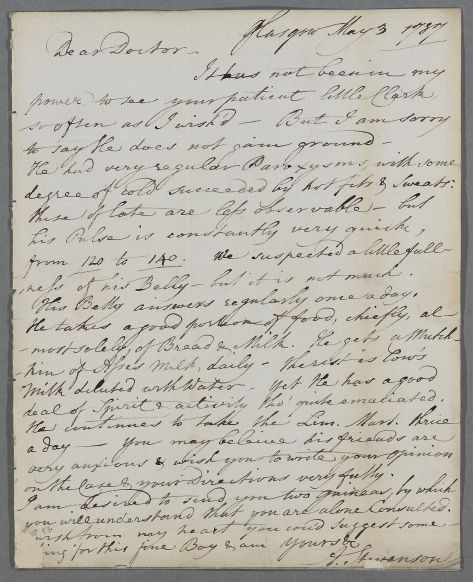 Glasgow May 3 1787
Dear Doctor
It has not been in my
power to see your patient little Clark
so often as I wish'd – But I am sorry
to say He does not gain ground –
He had very regular Paroxysms, with some
degree of cold succeeded by hot fits & Sweats.
these of late are less observable – but
his Pulse is constantly very quick,
from 120 to 140. We suspected a little full-
ness of his Belly – but it is not much.
His Belly answers regularly once a day.
He takes a good portion of food, chiefly, al-
most solely, of Bread & Milk. He gets a Mutch-
kin of Asses Milk, daily – the rest is Cows
Milk diluted with Water – yet He has a good
deal of Spirit & activity tho' quite emaciated.
He continues to take the Lim. Mart. thrice
a day – you may believe his friends are
very anxious & wish you to write your opinion
on the Case & your Directions very fully.
I am desired to send you two guineas, by which
you will understand that you are alone Consulted.
wish from my heart you could suggest some-
ing for this fine Boy & am Yours &c
A. Stevenson